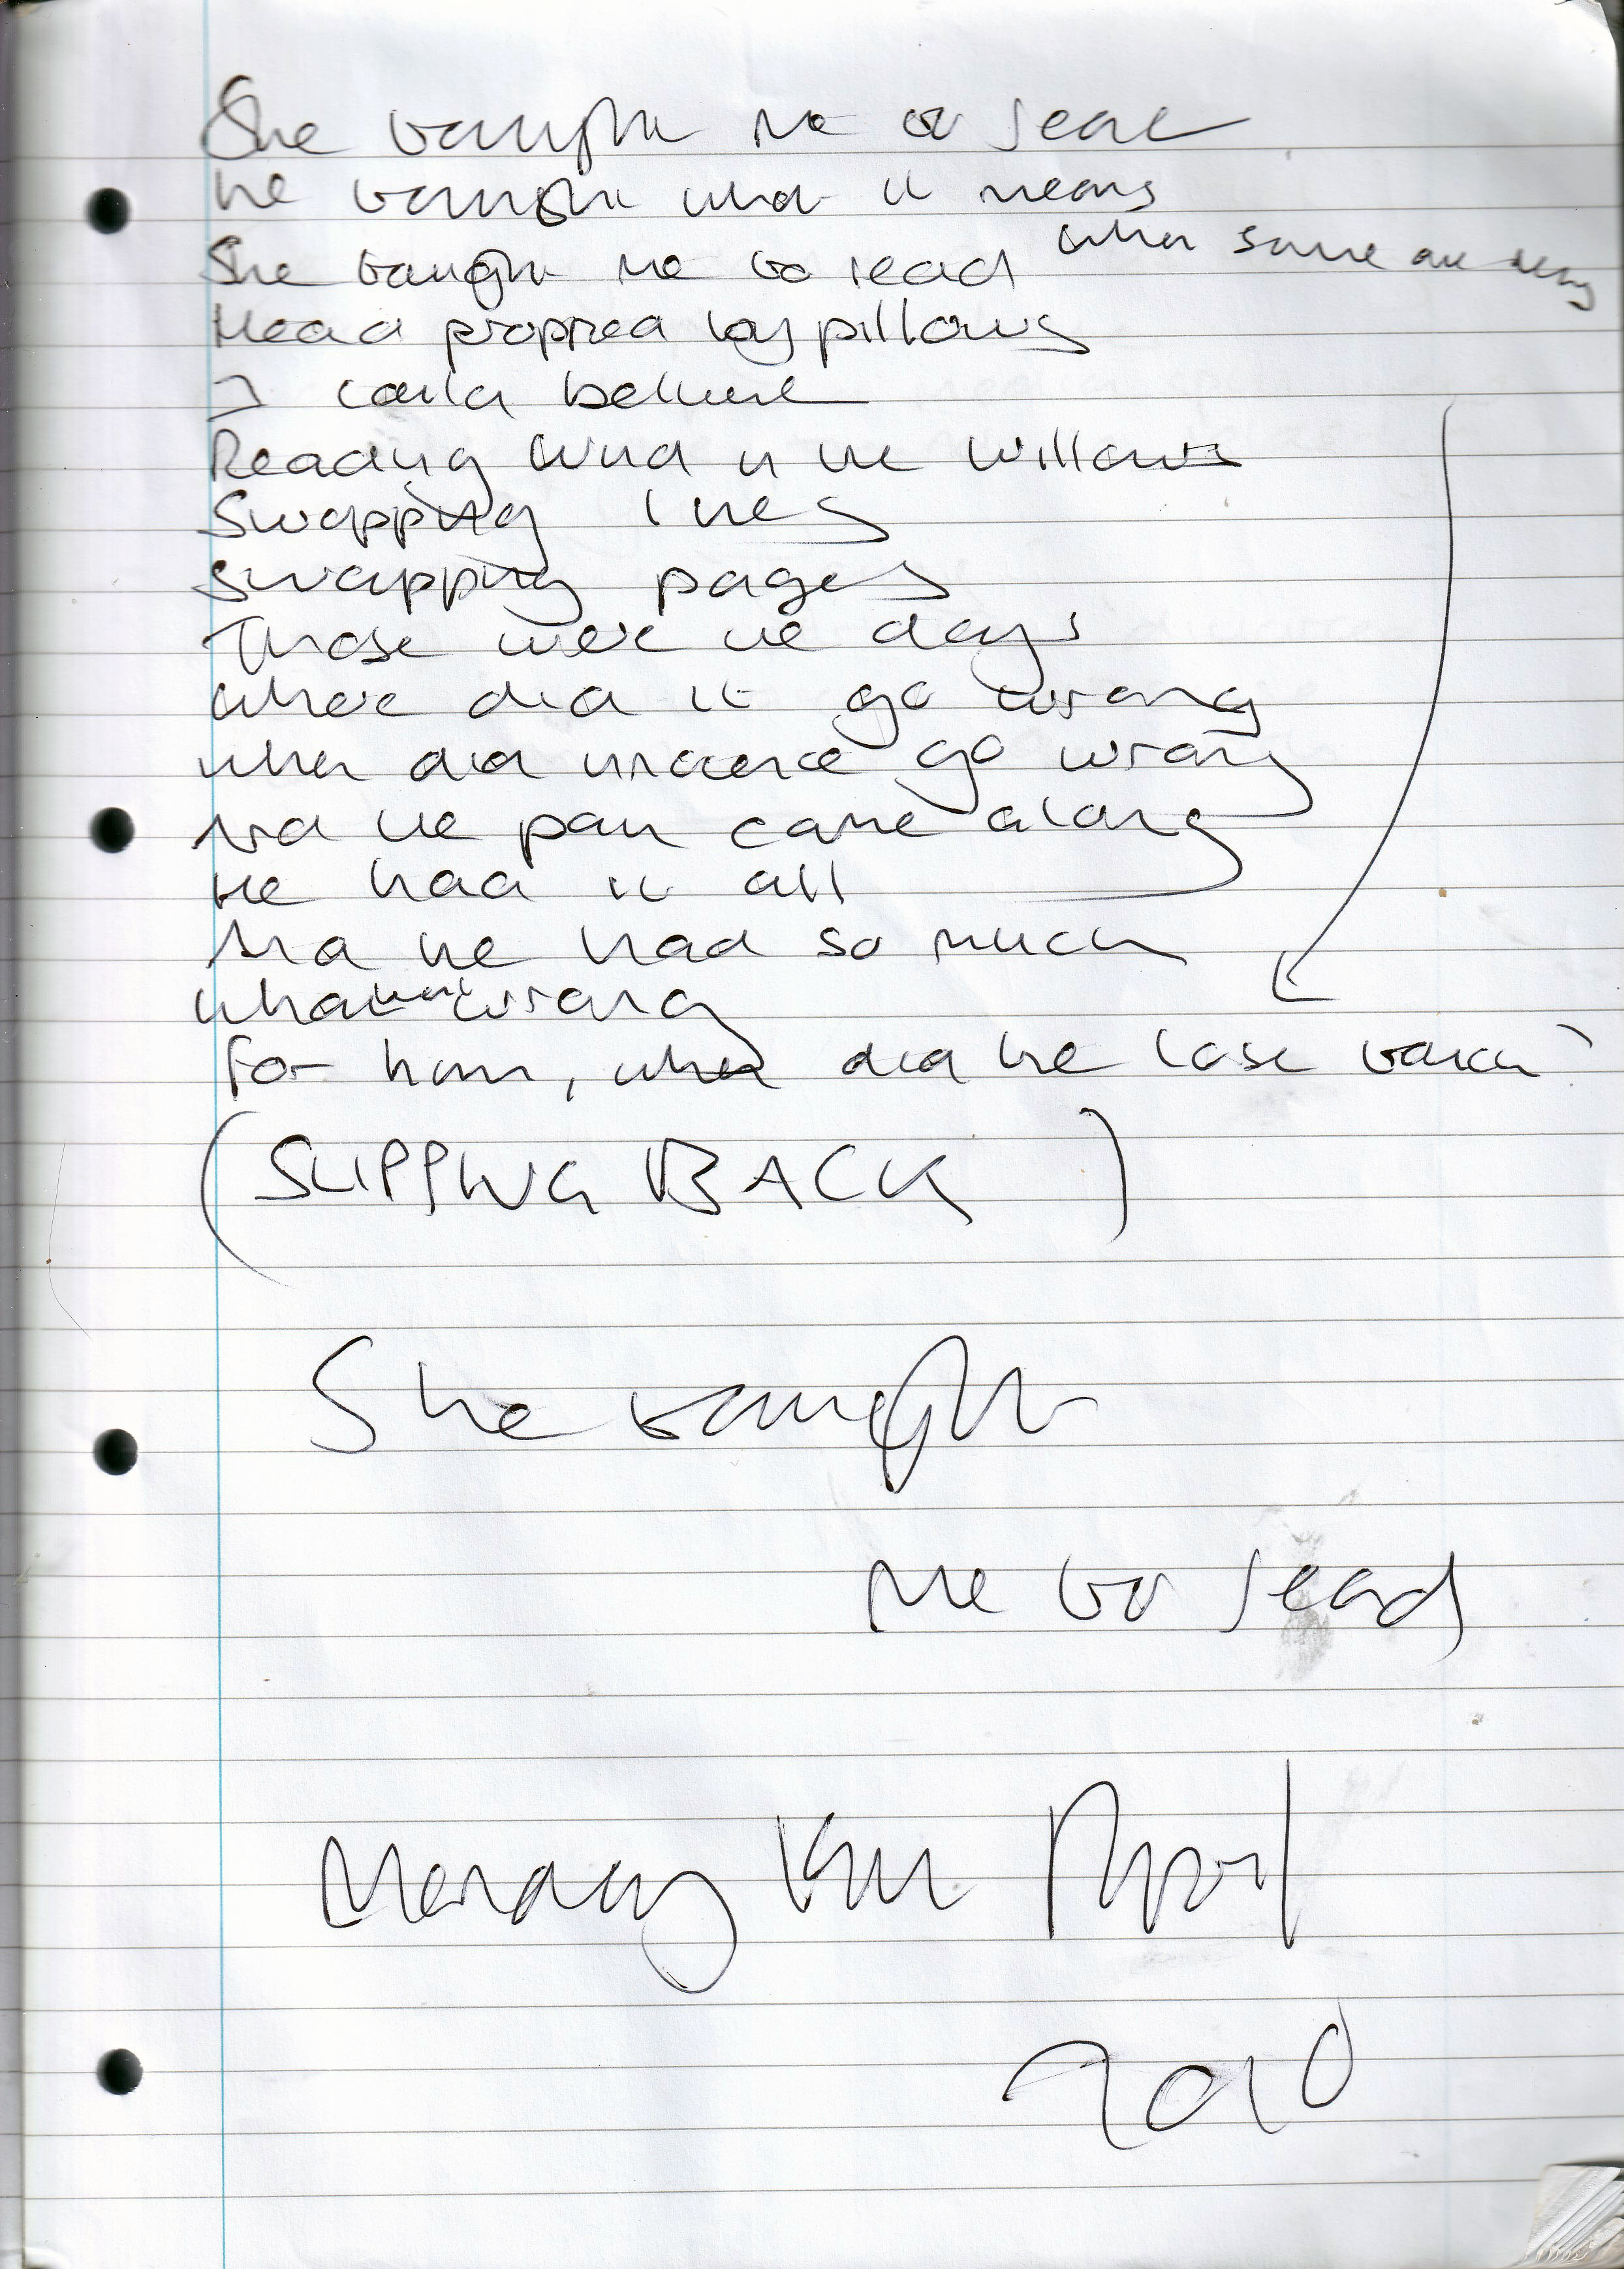 She taught me to read
He taught what it means
She taught me to read when some are
Head propped by pillows
I could believe
Reading Wind in the Willows
Swapping lines
Swapping pages
Those were the days
where did it go wrong
when did innocence go wrong
And the pain came along
He had it all
And he had so much
what went wrong
for him, when did he lose touch?
(SLIPPING BACK)
She taught
me to read
Monday April
2010